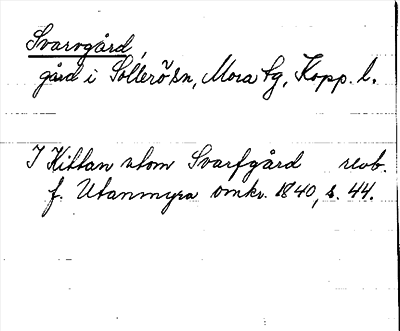 Svarvgård,
gård i Sollerösn, Mora tg, Kopp. l.
I Kittan utom Svarfgård revb.
f. Utanmyra omkr. 1840, s. 44.